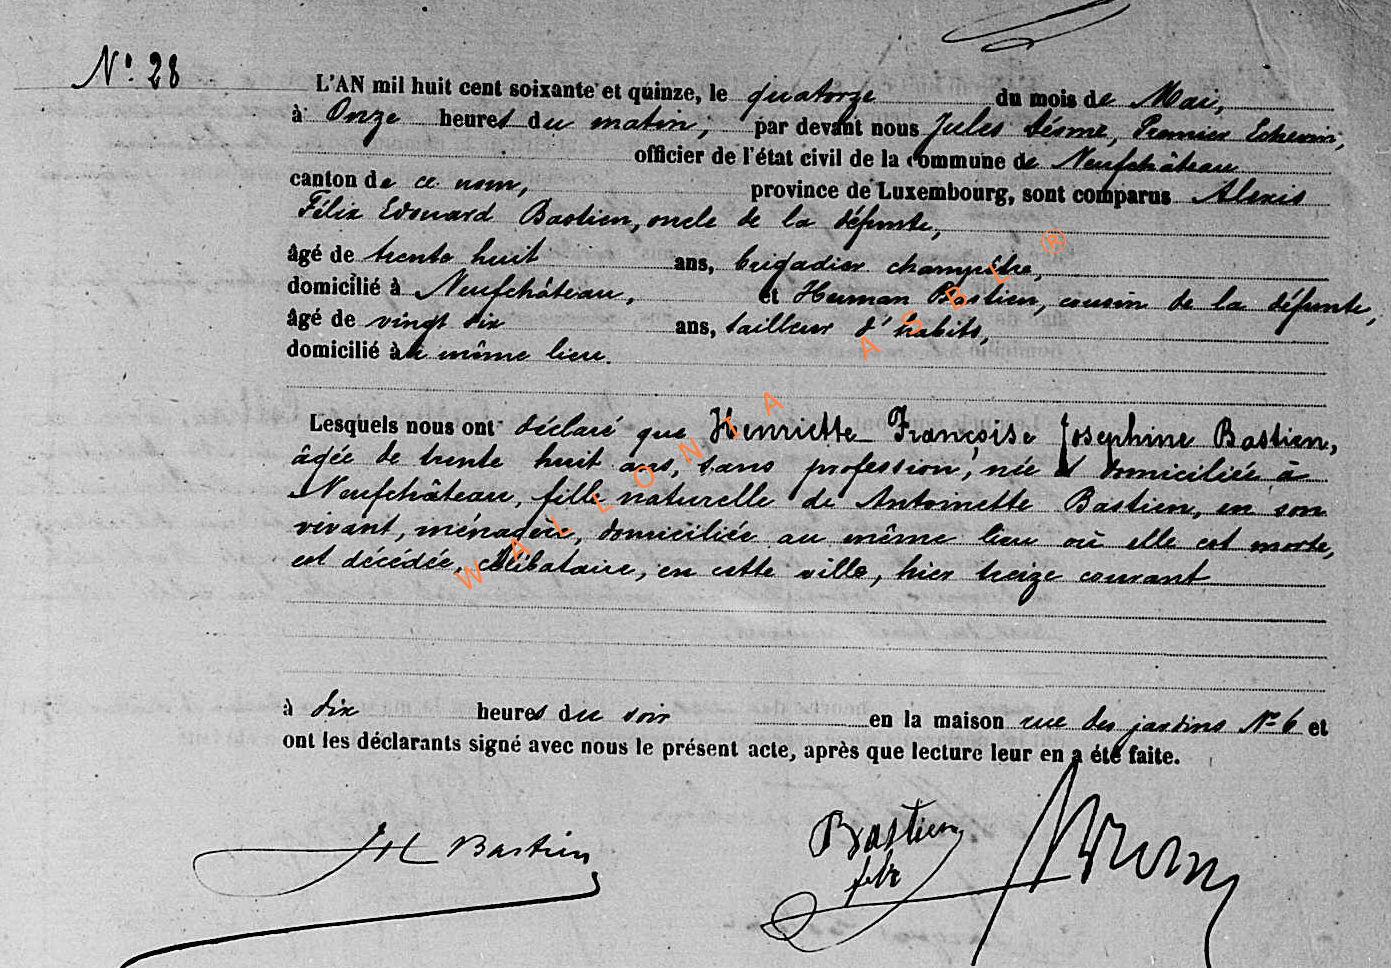 N° 28
L'AN mil huit cent soixante et quinze, le quatorze du mois de Mai,
à Onze heures du matin, par devant nous Jules Désme, Premier Echevin,
officier de l'état civil de la commune de Neufchâteau
canton de ce nom, province de Luxembourg, sont comparus Alexis
Félix Edouard Bastien, oncle de la défunte,
âgé de trente huit ans, brigadier champêtre,
domicilié à Neufchâteau, et Herman Bastien, cousin de la défunte,
âgé de vingt dix ans, tailleur d'habits,
domicilié au même lieu.
Lesquels nous ont déclaré que Henriette Françoise Josephine Bastien,
âgée de trente huit ans, sans profession, née & domiciliée à
Neufchâteau, fille naturelle de Antoinette Bastien, en son
vivant, ménagère, domiciliée au même lieu où elle est morte,
est décédée, célibataire, en cette ville, hier treize courant
à dix heures du soir en la maison rue des jardins N° 6 et
ont les déclarants signé avec nous le présent acte, après que lecture leur en a été faite.
JH Bastien
Bastien
felix
WALLONIA ASBL ®